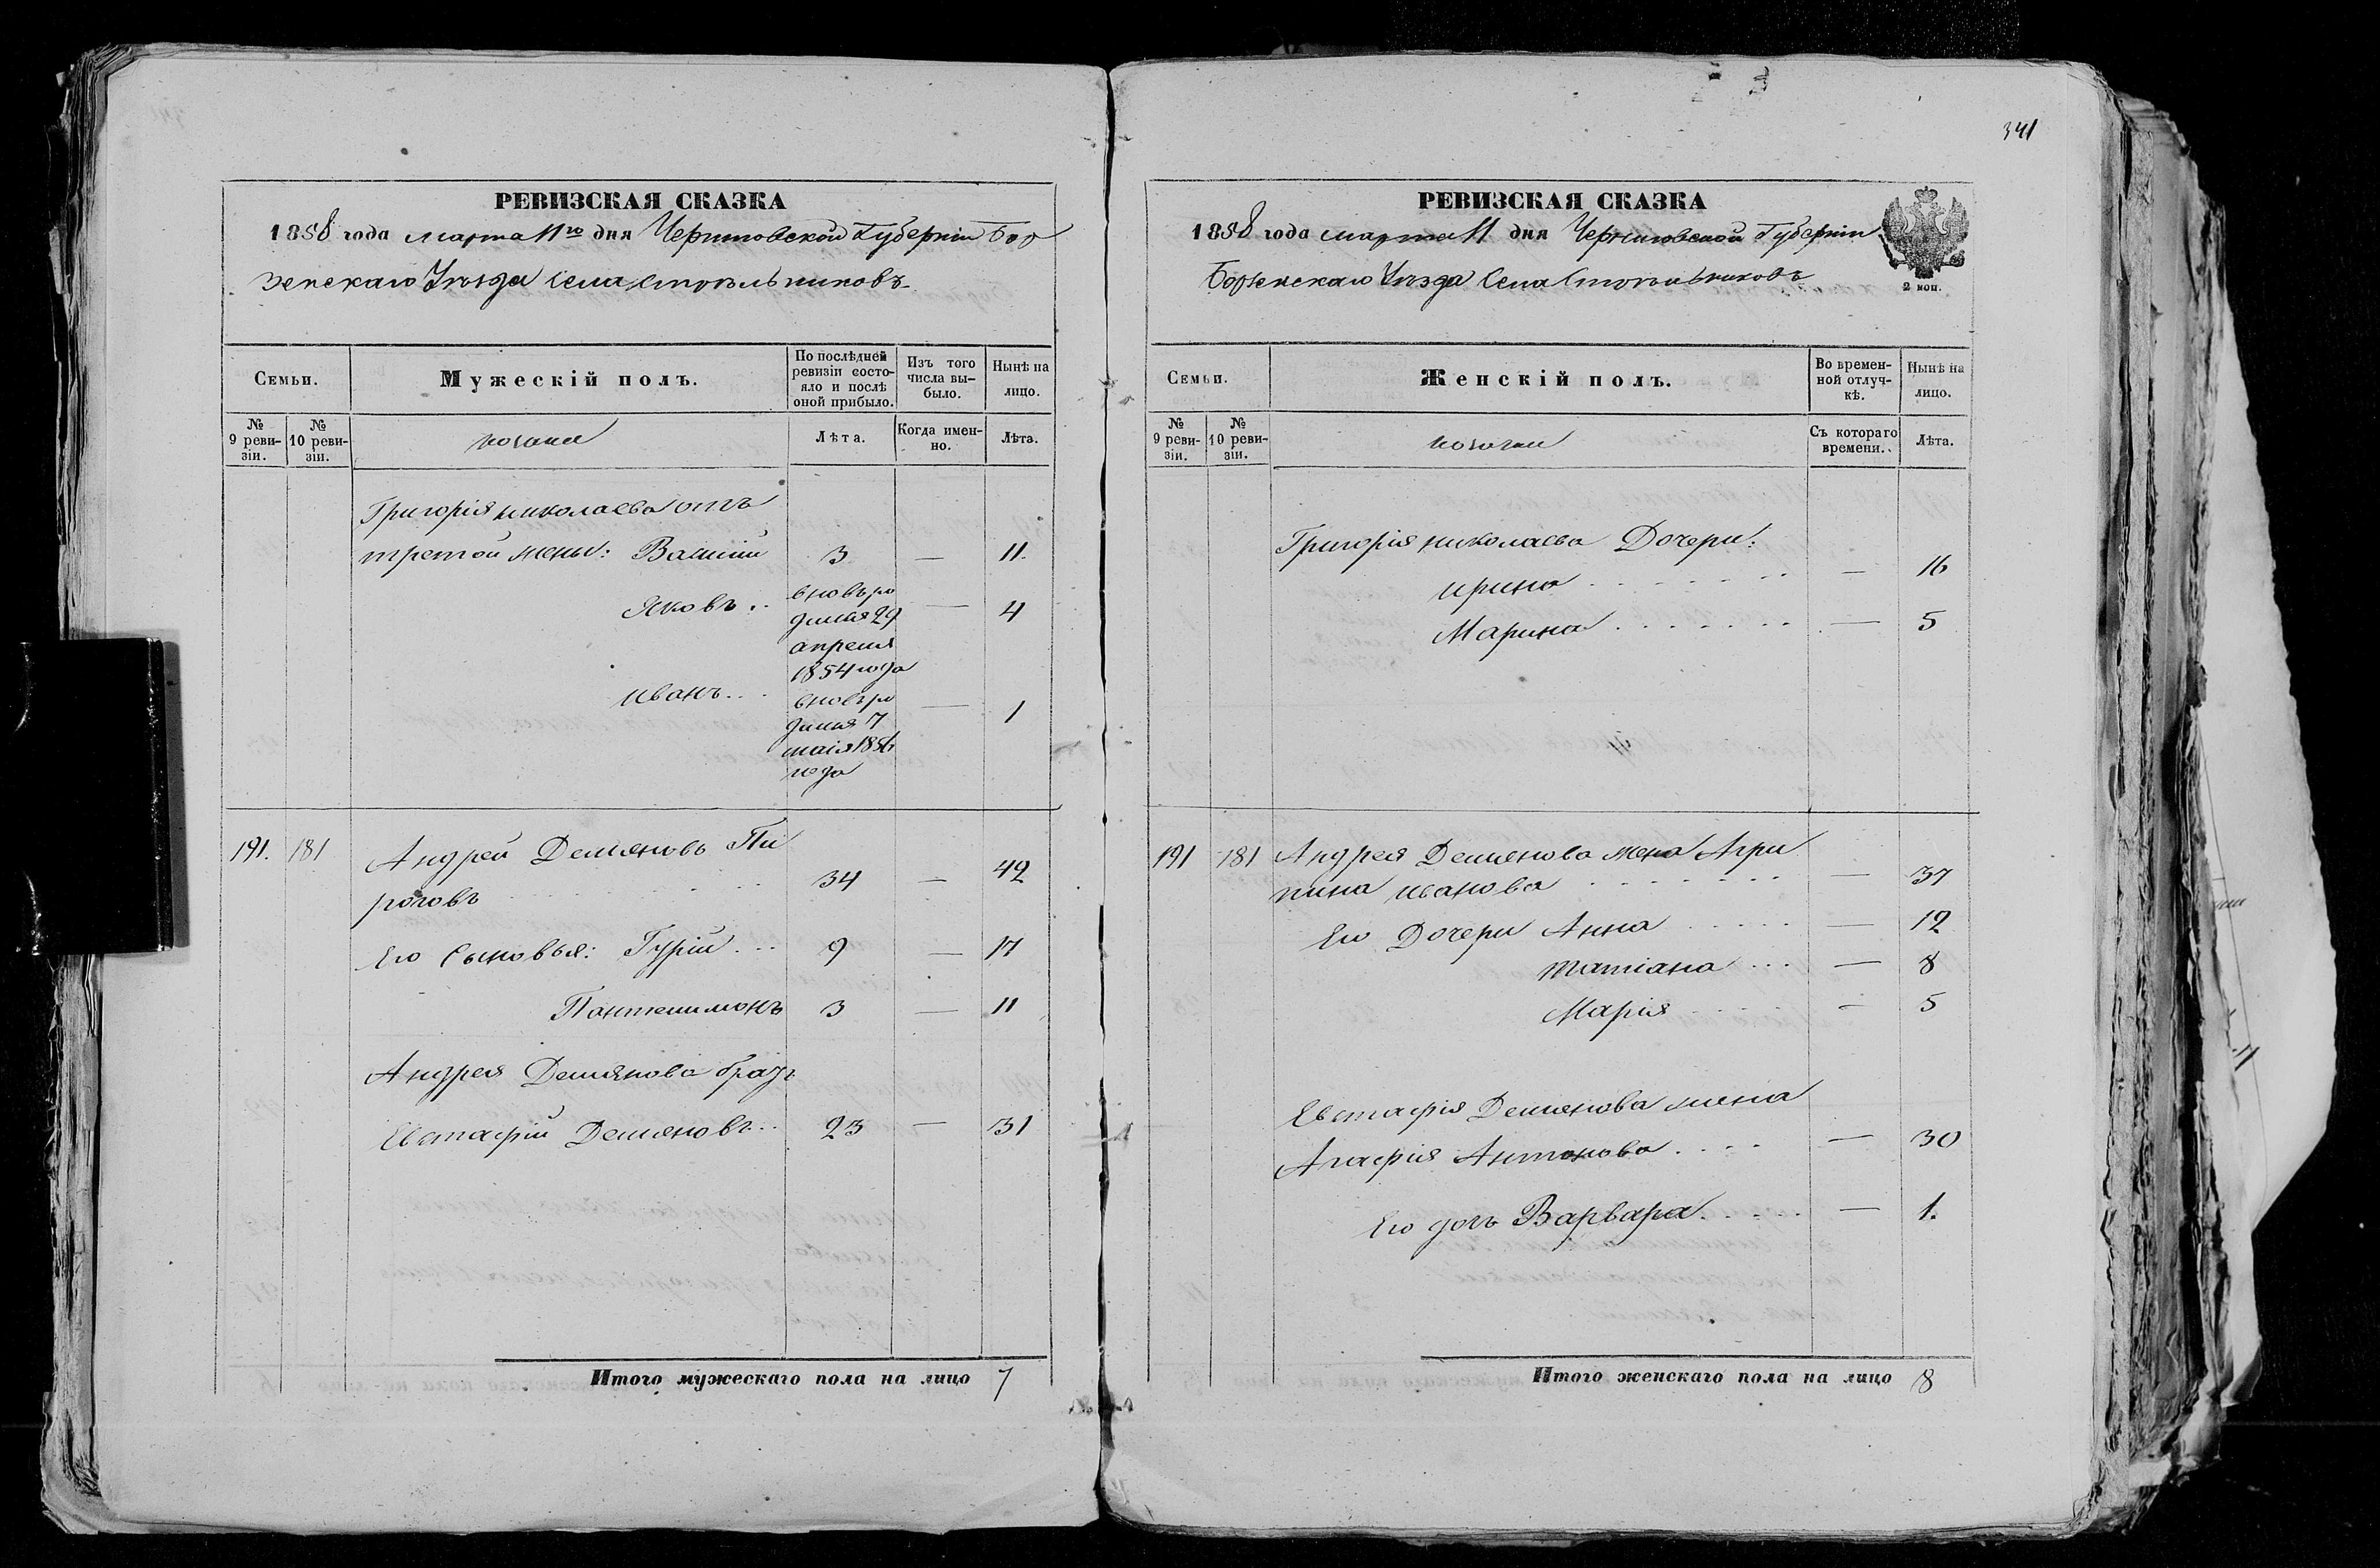 341
РЕВИЗСКАЯ СКАЗКА
1858 года марта 11го дня Черниговской Губернии Бор
зенскаго Уѣзда Села Стрѣльниковъ
Семьи.
Мужескій полъ.
По послѣдней ревизіи состо-
яло и послѣ
оной прибыло.
Изъ того
числа вы-
было.
Нынѣ на
лицо.
№
9 реви-
зіи.
№
10 реви-
зіи.
козаки
Лѣта.
Когда имен-
но.
Лѣта.
Григорія Николаева отъ
третой жены: Василій 3 — 11.
Яковъ .. вновь ро — 4
дился 29
апреля
1854 года
Иванъ... вновь ро — 1
дился 7
маія 1856
года
191. 181 Андрей Демяновъ Пи
роговъ 34 — 42
Его Сыновья: Гурій ... 9 — 17
Пантелимонъ 3 — 11
Андрея Демянова братъ
Евстафій Демяновъ .. 23 — 31
Итого мужескаго пола на лицо 7
РЕВИЗСКАЯ СКАЗКА
1858 года марта 11 дня Черниговской Губерніи
Борзенскаго Уѣзда Села Стрѣльниковъ
2 коп.
Семьи.
Женскій полъ.
Во времен-
ной отлуч-
кѣ.
Нынѣ на
лицо.
№
9 реви-
зіи.
№
10 реви-
зіи.
козачки
Съ котораго
времени.
Лѣта.
Григорія Николаева Дочери:
Ирина . . . . . . . — 16
Марина . . . . . . . — 5
191 181 Андрея Демянова жена Агри
пина Иванова . . . . . . . — 37
Его Дочери Анна . . . . . — 12
Татіана ... — 8
Марія . . . . — 5
Евстафія Демянова жена
Агафія Антонова . . . . — 30
Его дочь Варвара . . . . . — 1.
Итого женскаго пола на лицо 8